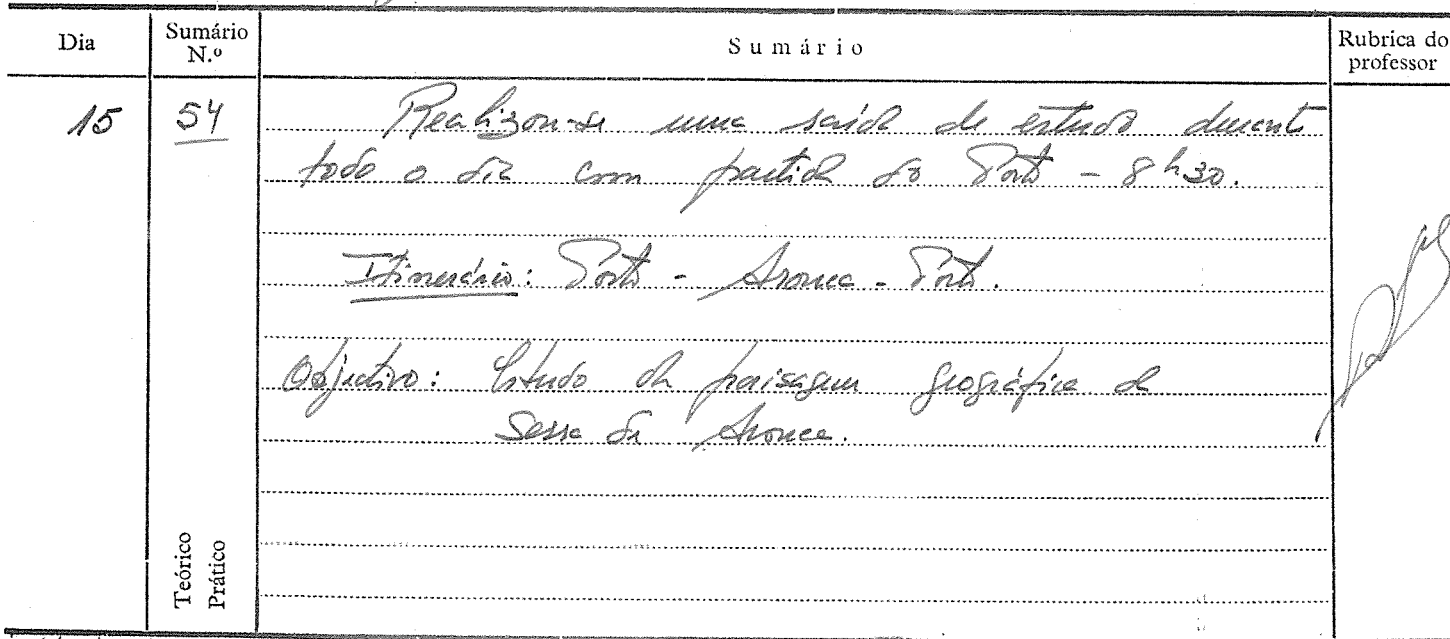 Dia
Sumário
N.º
Sumário
Rubrica do
professor
15
54
Realizou-se uma saída de estudo durante
todo o dia com partida do Porto - 8h30.
Itinerário: Porto - Arouca - Porto.
Objectivo: Estudo da paisagem geográfica da
Serra da Arouca.
Teórico
Prático